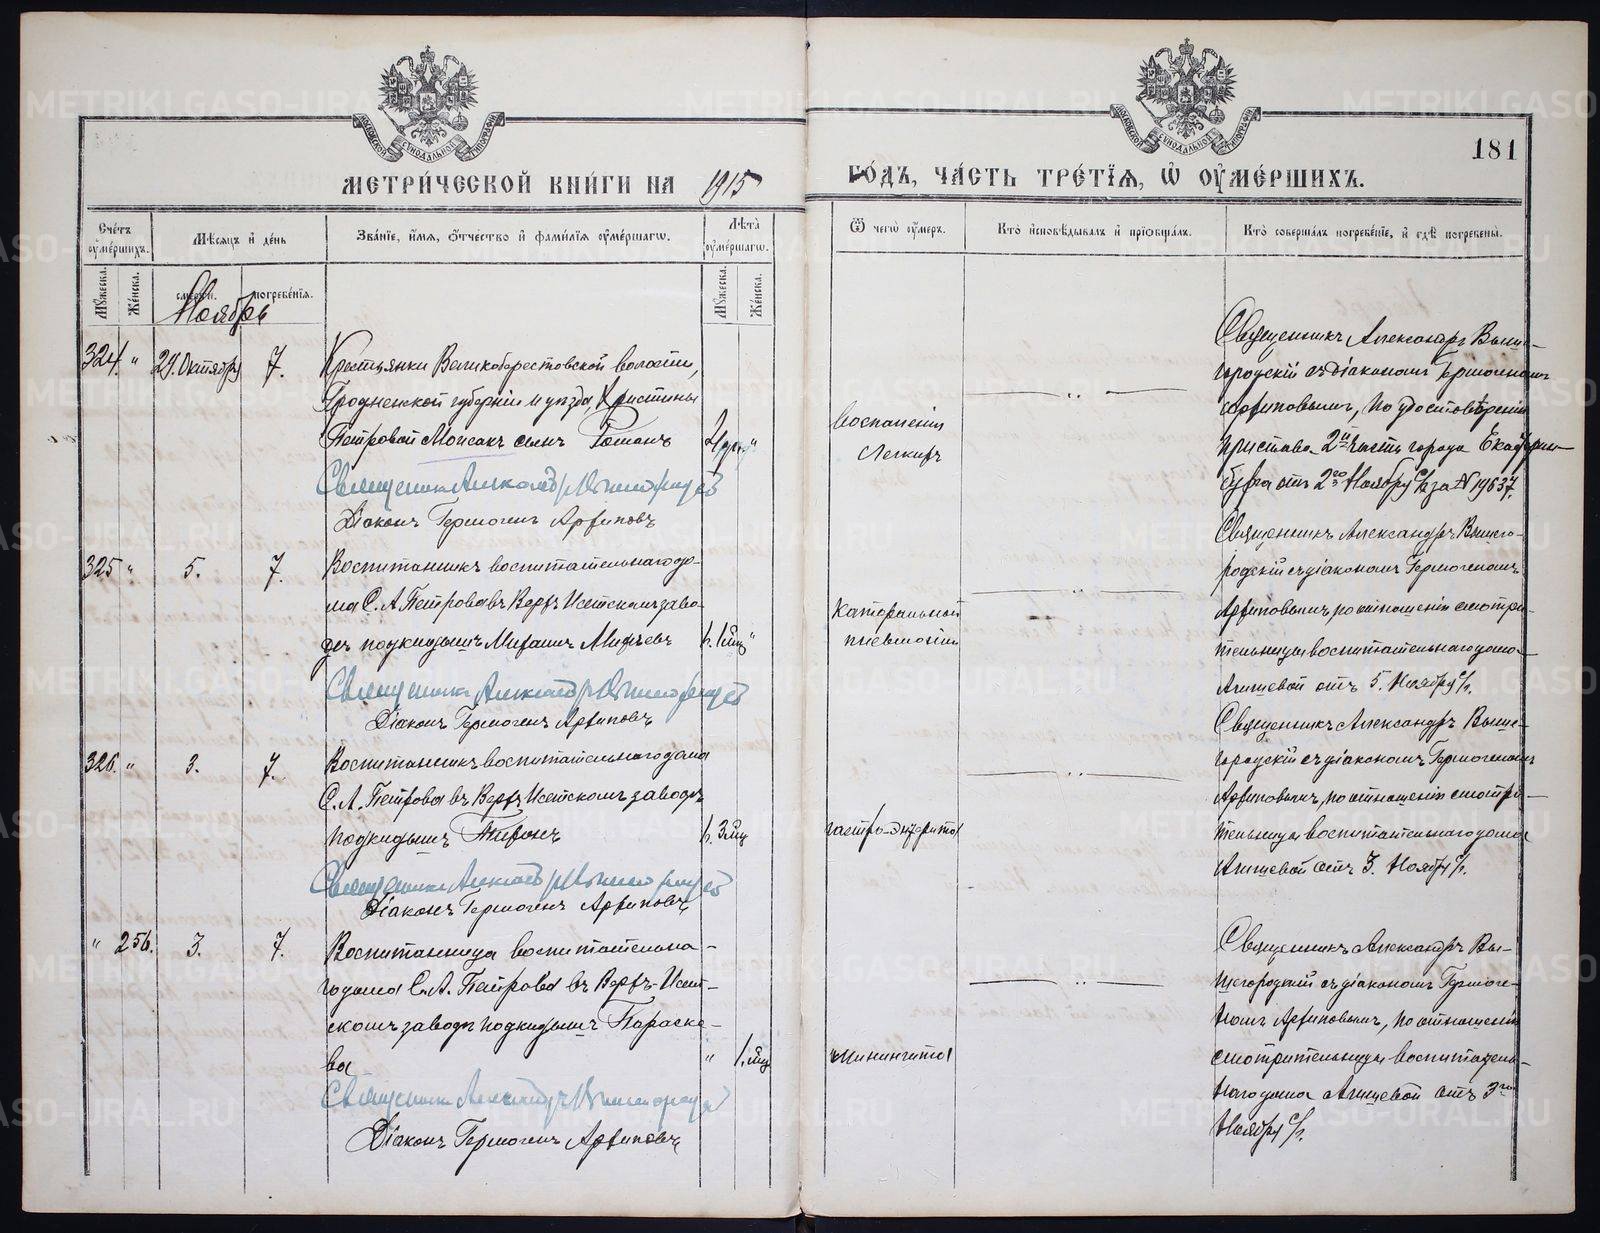 METRIKI.GASO-URAL.RU
МОСКОВСКОЙ СѴНОДАЛЬНОЙ ТИПОГРАФІИ
МЕТРИ́ЧЕСКОЙ КНИ́ГИ НА 1915
ГО́ДЪ, ЧА́СТЬ ТРЕ́ТЇѦ, Ѡ҆ ОУ҆МЕ́РШИХЪ.
181
Сче́тъ оу҆ме́ршихъ.
Мѣ́сяцъ и҆ де́нь
Зва́нїе, и҆́мѧ, ѻ҆́тчество и҆ фами́лїѧ оу҆ме́ршагѡ.
Лѣ́та оу҆ме́ршагѡ.
Ѿ чегѡ̀ оу҆́меръ.
Кто̀ и҆сповѣ́дывалъ и҆ прїѡбща́лъ.
Кто̀ соверша́лъ погребе́нїе, и҆ гдѣ̀ погребены̀.
Мꙋ́жеска.
Же́нска.
сме́рти.
погребе́нїѧ.
Мꙋ́жеска.
Же́нска.
Ноябрь
324. " 29. Октября 7.
Крестьянки Великоберестовской волости,
Гродненской губерніи и уѣзда, Кристины
Петровой сынъ Романъ
Священникъ Александръ Вышегородскій
Діаконъ Гермогенъ Арефиновъ
воспаленія
легкихъ
Священникъ Александръ Выше-
городскій съ діакономъ Гермогеномъ
по удостовѣренію
пристава 2й части города Екатерин-
бурга отъ 2го Ноября за № 19637.
325 " 5. 7.
Воспитанникъ воспитательнаго до-
ма С. А. Петрова въ Верхъ Исетскомъ заво-
дѣ подкидышъ Михаилъ
1. 1 мѣс. "
Священникъ Александръ Вышегородскій
Діаконъ Гермогенъ Арефиновъ
Катарральной
пневмоніи
Священникъ Александръ Вышего-
родскій съ діакономъ Гермогеномъ
по отношенію смотри-
тельницы воспитательнаго дома
отъ 5. Ноября с/г.
326. " 3. 7.
Воспитанникъ воспитательнаго дома
С. А. Петрова въ Верхъ Исетскомъ заводѣ
подкидышъ
3 мѣс.
Священникъ Александръ Вышегородскій
Діаконъ Гермогенъ Арефиновъ
гастро-энтерита
Священникъ Александръ Выше-
городскій съ діакономъ Гермогеномъ
по отношенію смотри-
тельницы воспитательнаго дома
отъ 3. Ноября с/г.
" 256. 3. 7.
Воспитанница воспитательна-
го дома С. А. Петрова въ Верхъ-Исет-
скомъ заводѣ подкидышъ Параске-
ва
" 1. мѣс.
Священникъ Александръ Вышегородскій
Діаконъ Гермогенъ Арефиновъ
менингита
Священникъ Александръ Вы-
шегородскій съ діакономъ Гермоге-
номъ по отношенію
смотрительницы воспитатель-
наго дома отъ 3го
Ноября с/г.